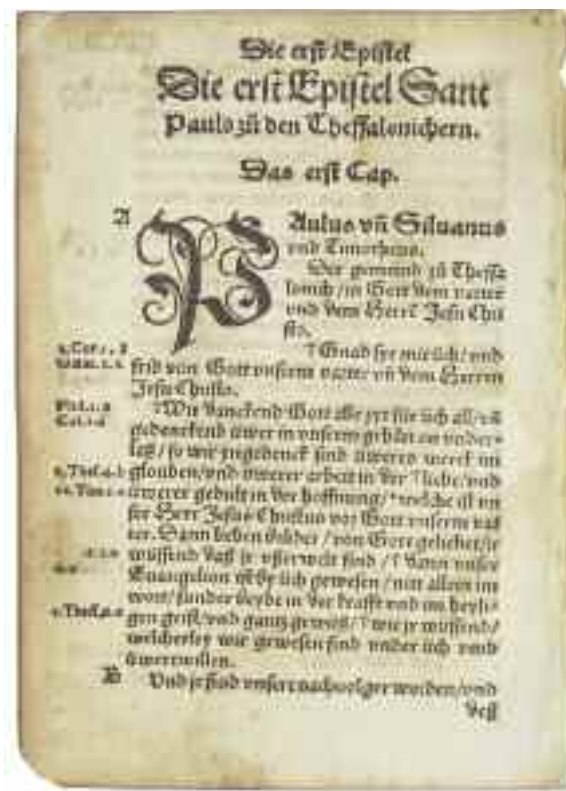 Die erst Epistel
Die erst Epistel Sant
Pauls zů den Thessalonichern.
Das erst Cap.
A
PAulus vñ Siluanus
vnd Timotheus.
Der gemeind zů Thessa
lonich / in Gott dem vatter
vnd dem Herrẽ Jesu Chri
sto.
Gnad sye mit üch / vnd
frid von Gott vnserem vatter vñ dem Herren
Jesu Christo.
Wir danckend Gott alle zyt für üch all / vñ
gedenckend üwer in vnserem gebätt on vnder-
laß / so wir yngedenck sind üweres werck im
glouben / vnd üwerer arbeit in der liebe / vnd
üwerer gedult in der hoffnung / welche ist vn
ser Herr Jesus Christus vor Gott vnserem vat
ter. Dann lieben brüder / von Gott geliebet / jr
wüssend daß jr vßerwelt sind / dann vnser
Euangelion ist by üch gewesen / nitt allein im
wort / sunder beyde in der krafft vnd im heyli-
gen geist / vnd gantz gewüß / wie jr wüssend /
welcherley wir gewesen sind vnder üch vmb
üwertwillen.
B Vnd jr sind vnsere nachuolger worden / vnd
deß